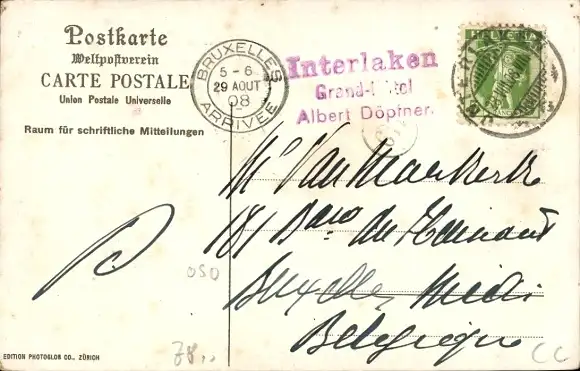 Postkarte
Weltpostverein
CARTE POSTALE
Union Postale Universelle
Raum für schriftliche Mitteilungen
BRUXELLES
5-6
29 AOUT
08
ARRIVÉE
Interlaken
Grand-Hôtel
Albert Döpfner.
HELVETIA
Mr Van Maerkerke
181 Baro de Hainaut
Bruxelles Midi
Belgique
OSO
78..
CC
EDITION PHOTOGLOB CO., ZÜRICH